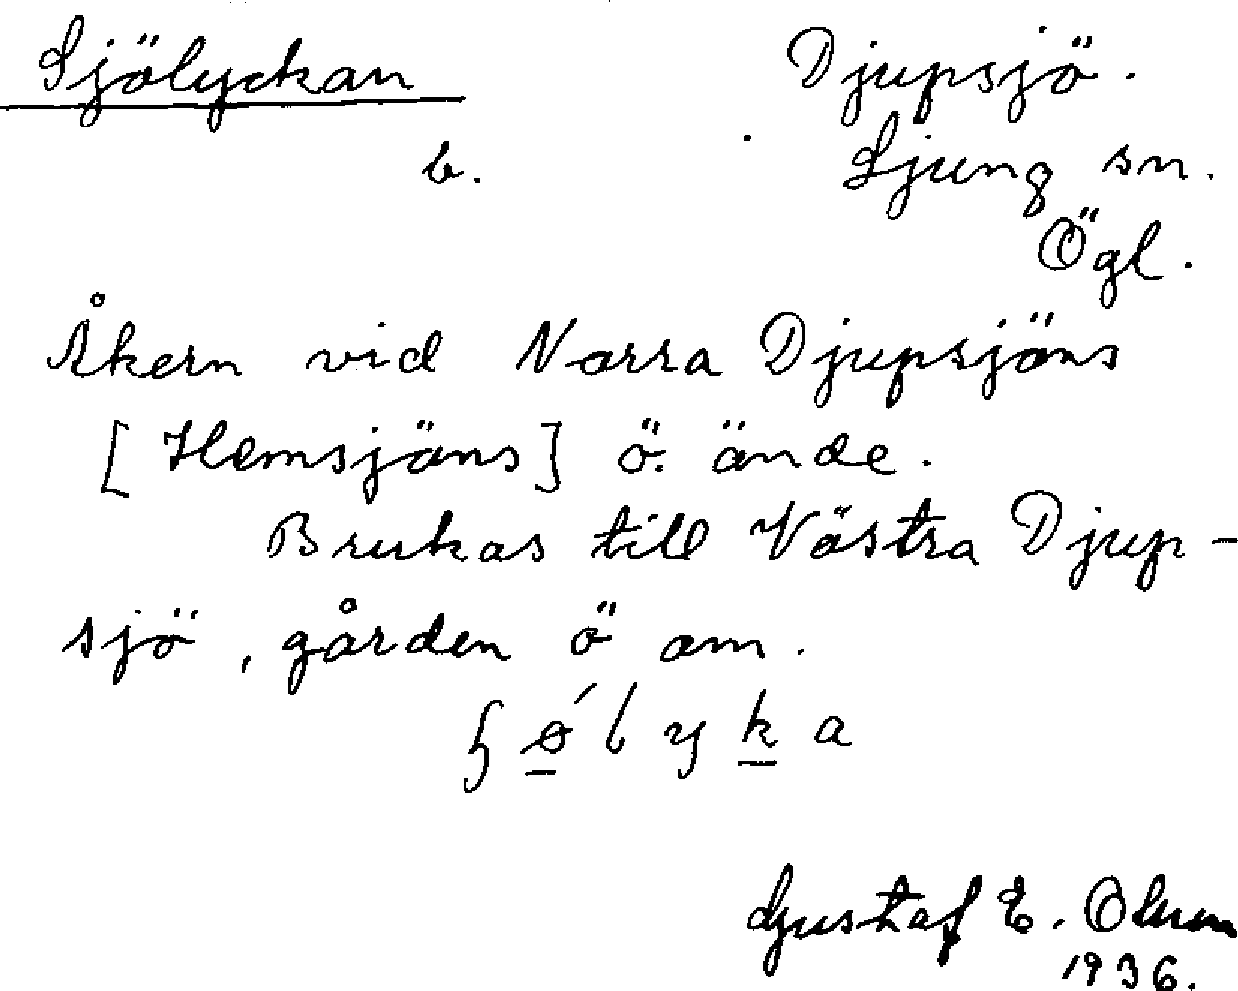 Sjölyckan
b.
Djupsjö.
Ljung sn.
Ögl.
Åkern vid Norra Djupsjöns
[Hemsjöns] ö. ände.
Brukas till Västra Djup-
sjö, gården ö om.
ʃǿlyka
Gustaf E. Olsson
1936.